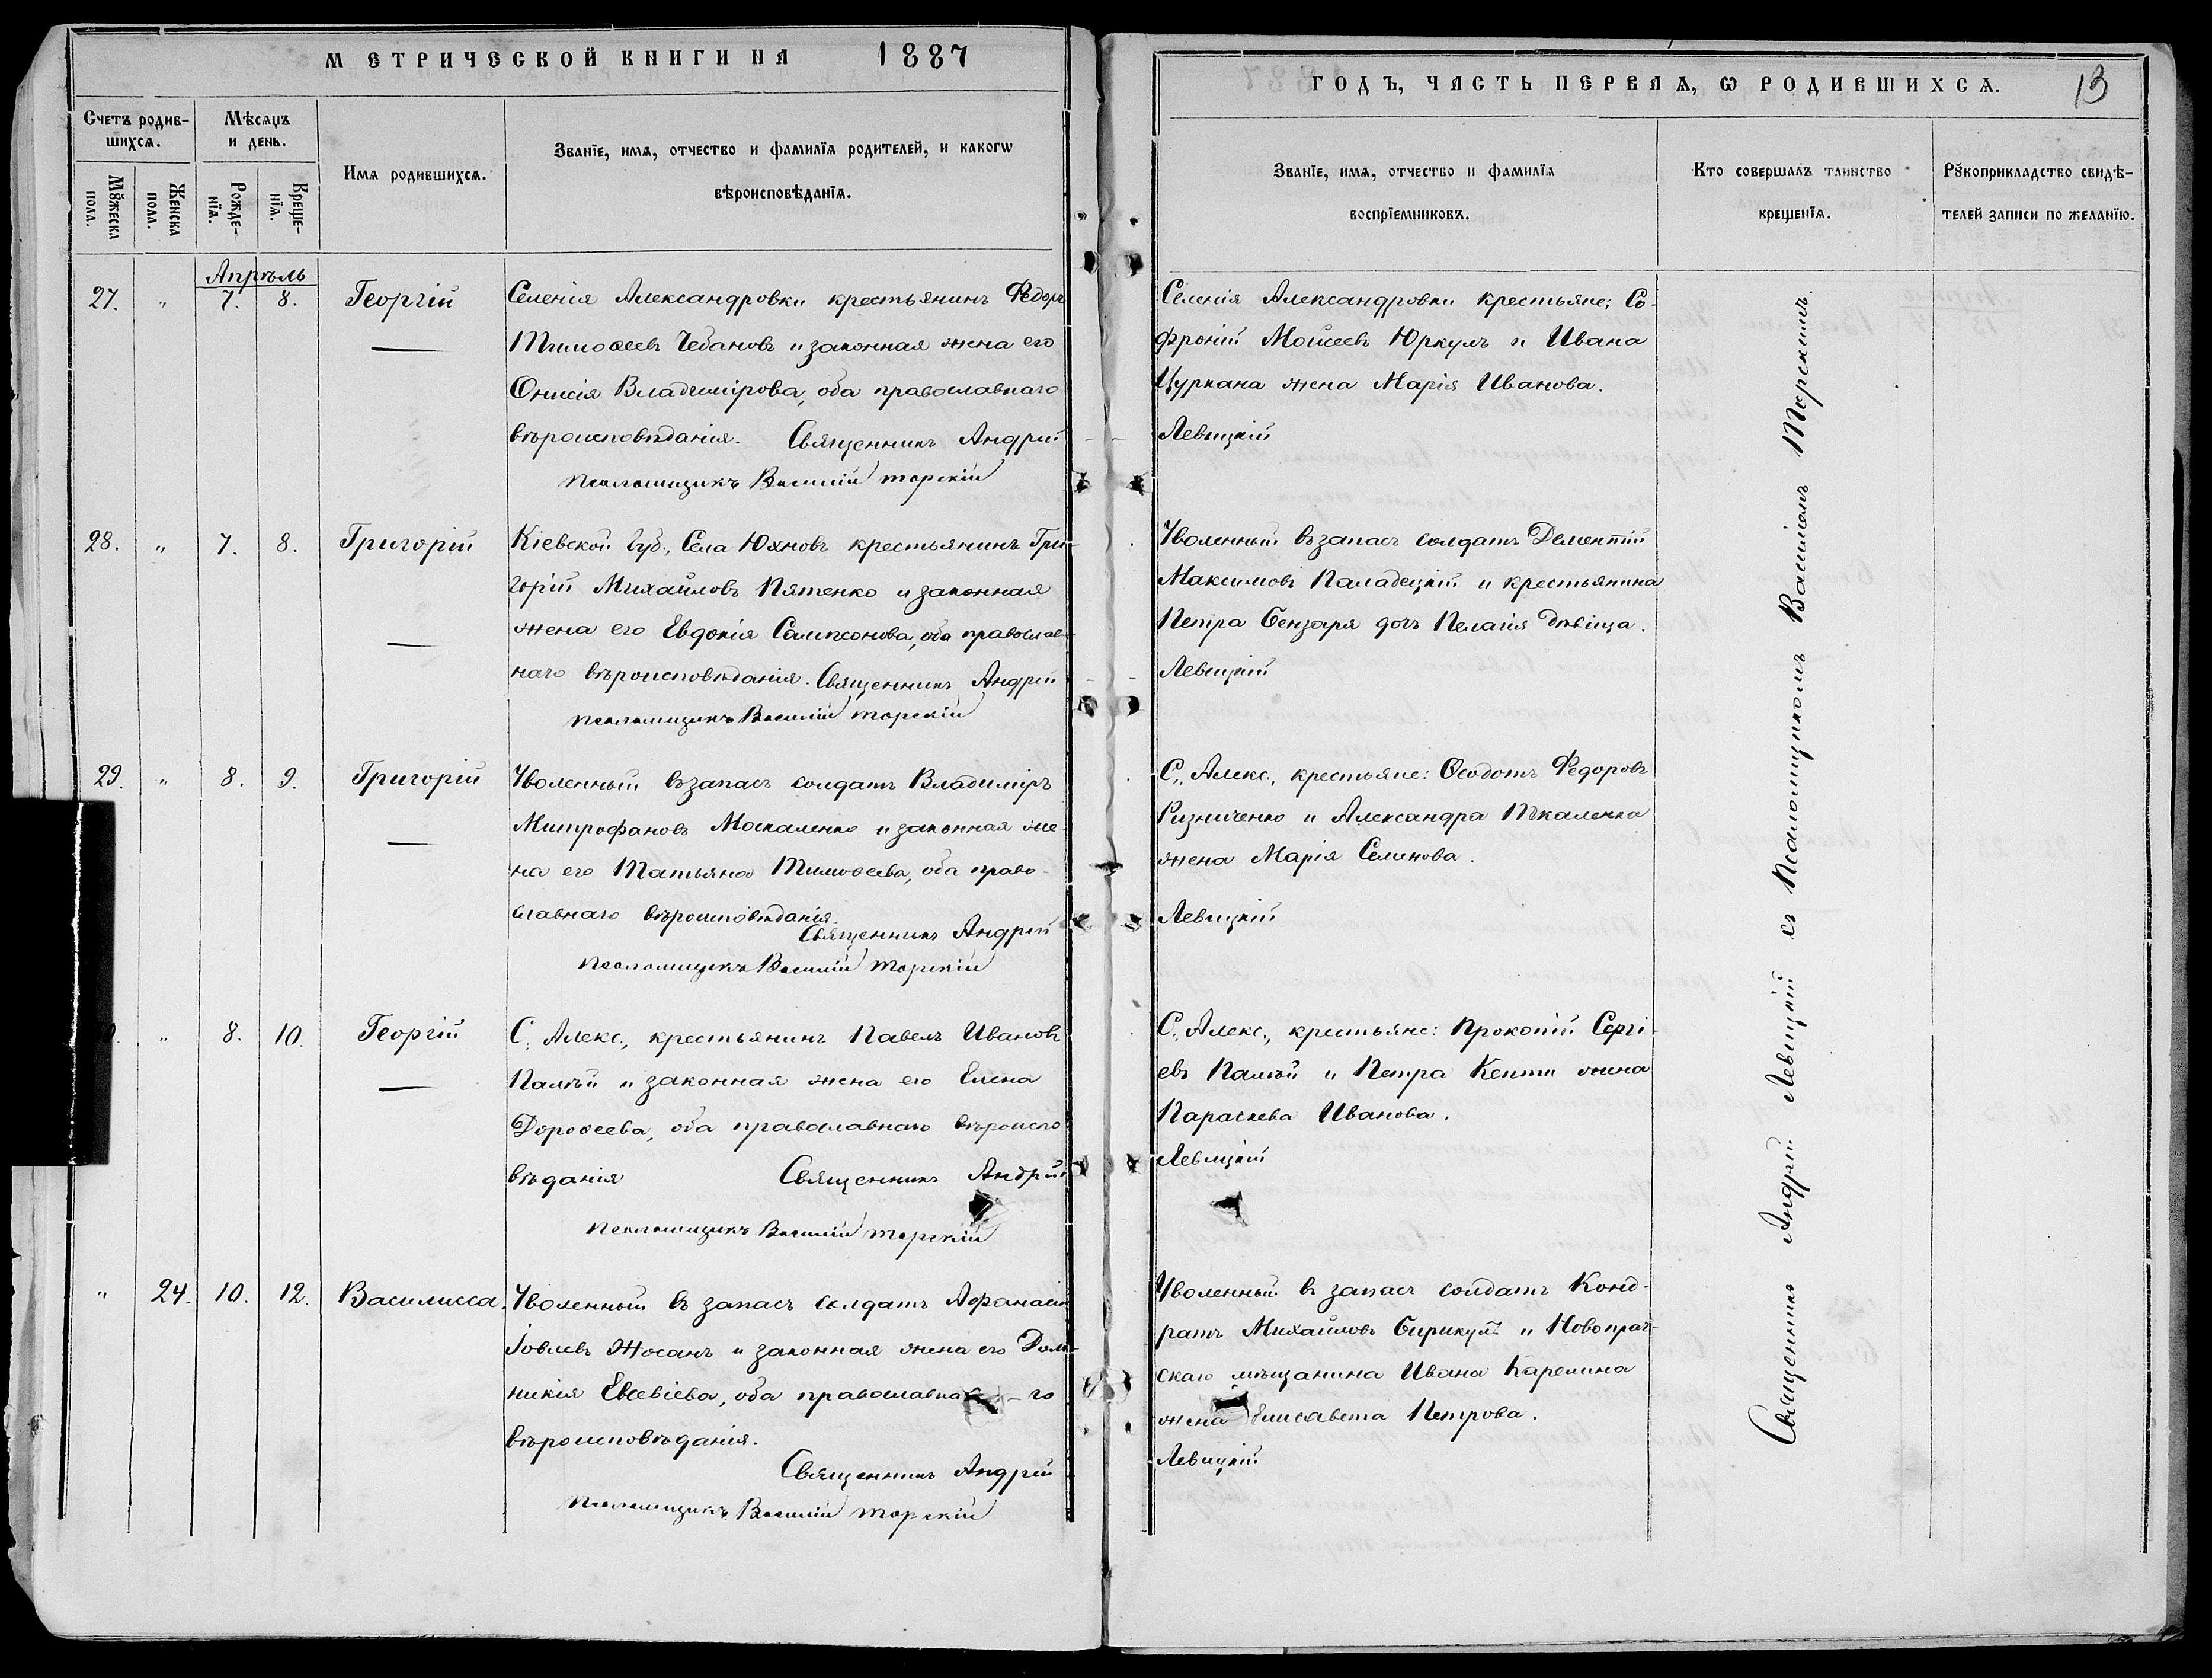 МЕТРИЧЕСКОЙ КНИГИ НА 1887
ГОДЪ, ЧАСТЬ ПЕРВАЯ, Ѡ РОДИВШИХСѦ. 13
Счетъ родив-
шихсѧ.
Мѣсяцъ
и день.
Имѧ родившихсѧ.
Званїе, имѧ, отчество и фамилїѧ родителей, и какогѡ
вѣроисповѣданїѧ.
Мꙋжеска
пола.
Женска
пола.
Рожде-
нїѧ.
Креще-
нїѧ.
Званїе, имѧ, отчество и фамилїѧ
воспрїемниковъ.
Кто совершалъ таинство
крещенїѧ.
Рꙋкоприкладство свидѣ-
телей записи по желанїю.
Апрѣль
27. " 7. 8. Георгій
Селенія Александровки крестьянинъ Ѳедоръ
Тимоѳеевъ Чебановъ и законная жена его
Онисія Владимірова, оба православнаго
вѣроисповѣданія. Священникъ Андрей
Псаломщикъ Василій Торскій
Селенія Александровки крестьяне: Со-
фроній Моисеевъ Юркулъ и Ивана
Цуркана жена Марія Иванова.
Левицкій
28. " 7. 8. Григорій
Кіевской губ., Села Юхновъ крестьянинъ Гри-
горій Михайловъ Пятенко и законная
жена его Евдокія Сампсонова, оба православ-
наго вѣроисповѣданія. Священникъ Андрей
Псаломщикъ Василій Торскій
Уволенный въ запасъ солдатъ Дементій
Максимовъ Паладецкій и крестьянина
Петра Бензаря дочь Пелагія дѣвица.
Левицкій
29. " 8. 9. Григорій
Уволенный въ запасъ солдатъ Владиміръ
Митрофановъ Москаленко и законная же-
на его Татьяна Тимоѳеева, оба право-
славнаго вѣроисповѣданія.
Священникъ Андрей
Псаломщикъ Василій Торскій
С. Алекс., крестьяне: Ѳеодотъ Ѳедоровъ
Ризниченко и Александра Пѣкаленка
жена Марія Семенова.
Левицкій
" 8. 10. Георгій
С. Алекс., крестьянинъ Павелъ Ивановъ
Палѣй и законная жена его Елена
Дороѳеева, оба православнаго вѣроиспо-
вѣданія Священникъ Андрей
Псаломщикъ Василій Торскій
С. Алекс., крестьяне: Прокопій Сергі-
евъ Палѣй и Петра Кепти жена
Параскева Иванова.
Левицкій
" 24. 10. 12. Василисса.
Уволенный въ запасъ солдатъ Аѳанасій
Іовлевъ Жосанъ и законная жена его Дом-
никія Евсевіева, оба православна-го
вѣроисповѣданія.
Священникъ Андрей
Псаломщикъ Василій Торскій
Уволенный въ запасъ солдатъ Конд-
ратъ Михайловъ Бирикулъ и Новопраг-
скаго мѣщанина Ивана Карелина
жена Елисавета Петрова.
Левицкій
Священникъ Андрей Левицкій съ Псаломщикомъ Василіемъ Торскимъ.